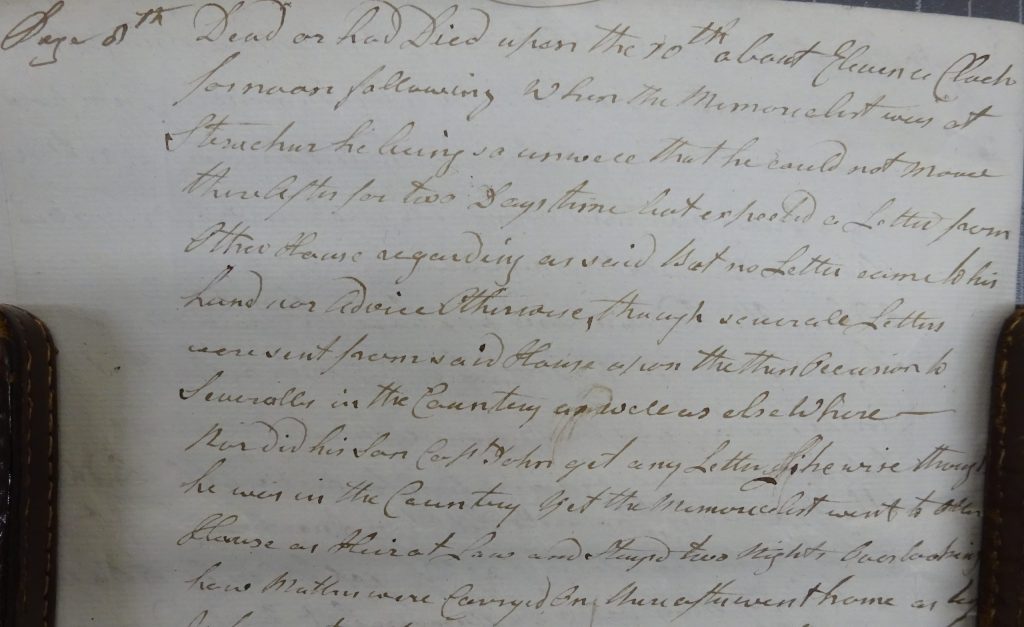 Page 8th Dead or had Died upon the 10th about Elevene Clock
fornoon following When the Memorialist was at
Strachur he being so unwell that he could not Move
thereafter for two Days time but expected a Letter from
Otter House regarding as said But no Letter came to his
hand nor advice Otherwise, though severall Letters
were sent from said House upon the then Occasion to
Severalls in the Country as well as elseWhere
Nor did his Son Capt. John get any Letter likewise though
he was in the Country Yet the Memorialist went to
House as Heir at Law and Stayd two Nights Overlooking
how Matters were Carryd On thereafter went home as